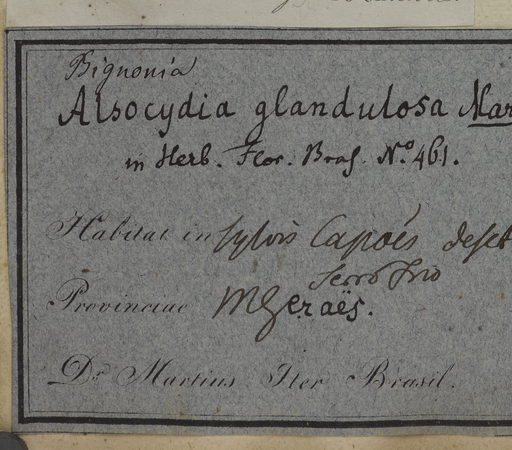 Bignonia
Alsocydia glandulosa Mar
in Herb. Flor. Bras. No. 461.
Habitat in sylvis Capoës desert
Serro Frio
Provinciae MGeraës.
Dr. Martius Iter Brasil.